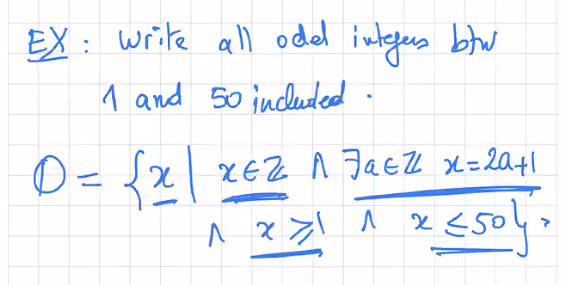 EX : Write all odd integers btw
1 and 50 included .
O = {x | x∈ℤ ∧ ∃a∈ℤ x=2a+1
∧ x ⩾1 ∧ x ≤50} .